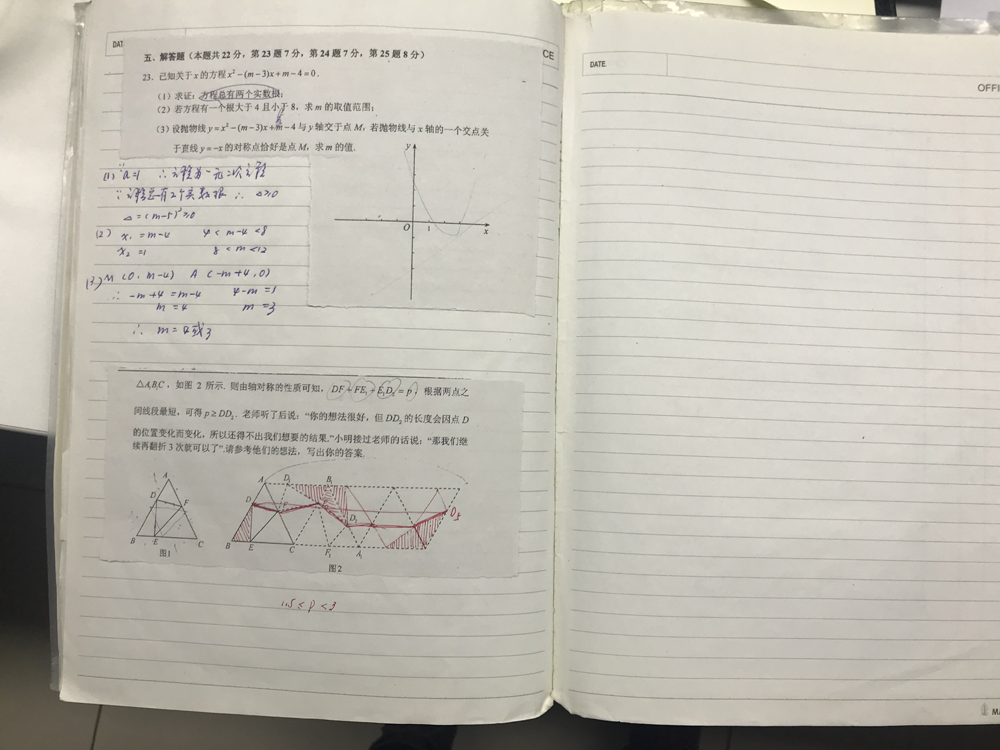 DATE
CE
五、解答题（本题共 22 分，第 23 题 7 分，第 24 题 7 分，第 25 题 8 分）
23. 已知关于 x 的方程 x²-(m-3)x+m-4=0.
（1）求证：方程总有两个实数根；
（2）若方程有一个根大于 4 且小于 8，求 m 的取值范围；
（3）设抛物线 y=x²-(m-3)x+m-4 与 y 轴交于点 M，若抛物线与 x 轴的一个交点关
于直线 y=-x 的对称点恰好是点 M，求 m 的值.
y
O 1 x
(1) ∵a=1 ∴方程为一元二次方程
∵方程总有2个实数根 ∴ △≥0
△=(m-5)²≥0
(2) x₁=m-4 4<m-4<8
x₂=1 8<m<12
(3) M (0, m-4) A (-m+4, 0)
∴ -m+4=m-4 4-m=1
m=4 m=3
∴ m=4或3
△A₁B₁C，如图 2 所示. 则由轴对称的性质可知，DF+FE₁+E₁D₂=p，根据两点之
间线段最短，可得 p≥DD₂. 老师听了后说：“你的想法很好，但 DD₂ 的长度会因点 D
的位置变化而变化，所以还得不出我们想要的结果.”小明接过老师的话说：“那我们继
续再翻折 3 次就可以了”.请参考他们的想法，写出你的答案.
A
D F
B E C
图1
A D₁ B₁
D F D₂ D₅
B E C F₁ A₁
图2
1.5≤p<3
DATE
OFFI